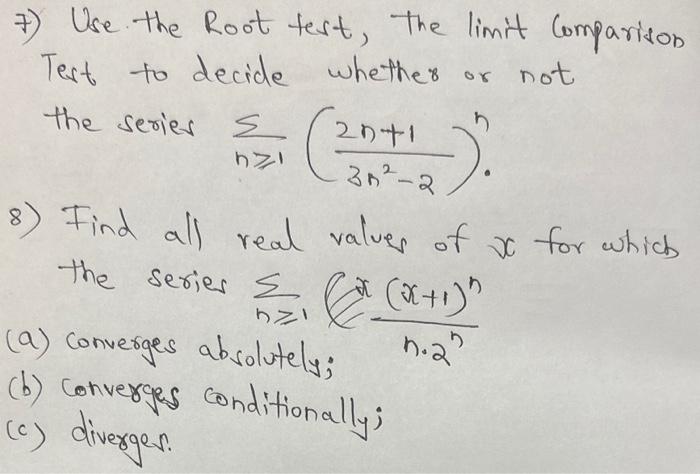 7) Use the Root test, The limit Comparison
Test to decide whether or not
the series Σ n≥1 ((2n+1)/(3n²-2))ⁿ.
8) Find all real values of x for which
the series Σ n≥1 (x+1)ⁿ/(n.2ⁿ)
(a) converges absolutely;
(b) converges conditionally;
(c) diverges.